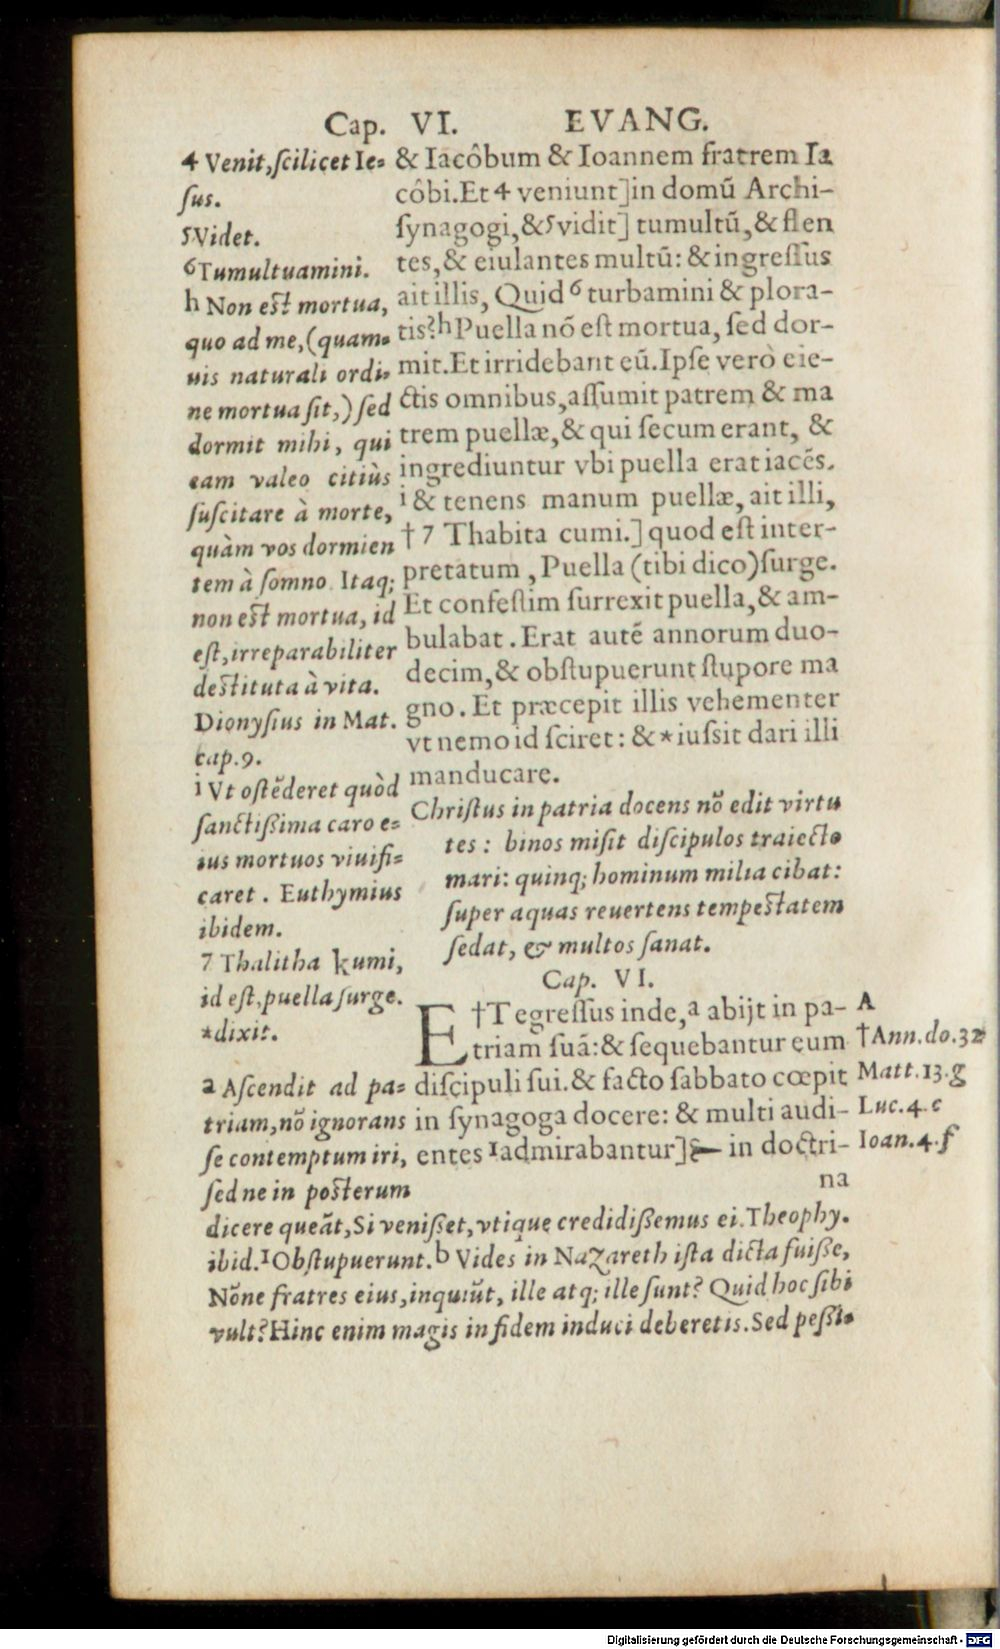 Cap. VI. EVANG.
4 Venit, ſcilicet Ie=
ſus.
5 Videt.
6 Tumultuamini.
h Non eſt mortua,
quo ad me, (quam=
uis naturali ordi=
ne mortua ſit,) ſed
dormit mihi, qui
eam valeo citiùs
ſuſcitare à morte,
quàm vos dormien
tem à ſomno. Itaq;
non eſt mortua, id
eſt, irreparabiliter
deſtituta à vita.
Dionyſius in Mat.
cap. 9.
i Vt oſtẽderet quòd
ſanctiſſima caro e=
ius mortuos viuifi=
caret. Euthymius
ibidem.
7 Thalitha kumi,
id eſt, puella ſurge.
*dixit.
a Aſcendit ad pa=
triam, nõ ignorans
ſe contemptum iri,
ſed ne in poſterum
& Iacôbum & Ioannem fratrem Ia
côbi. Et 4 veniunt] in domũ Archi-
ſynagogi, & 5 vidit] tumultũ, & flen
tes, & eiulantes multũ: & ingreſſus
ait illis, Quid 6 turbamini & plora-
tis? h Puella nõ eſt mortua, ſed dor-
mit. Et irridebant eũ. Ipſe verò eie-
ctis omnibus, aſſumit patrem & ma
trem puellæ, & qui ſecum erant, &
ingrediuntur vbi puella erat iacẽs.
i & tenens manum puellæ, ait illi,
† 7 Thabita cumi.] quod eſt inter-
pretatum, Puella (tibi dico) ſurge.
Et confeſtim ſurrexit puella, & am-
bulabat. Erat autẽ annorum duo-
decim, & obſtupuerunt ſtupore ma
gno. Et præcepit illis vehementer
vt nemo id ſciret: & * iuſsit dari illi
manducare.
Chriſtus in patria docens nõ edit virtu
tes: binos miſit diſcipulos traiecto
mari: quinq; hominum milia cibat:
ſuper aquas reuertens tempeſtatem
ſedat, & multos ſanat.
Cap. VI.
E†T egreſſus inde, a abijt in pa-
triam ſuã: & ſequebantur eum
diſcipuli ſui. & facto ſabbato cœpit
in ſynagoga docere: & multi audi-
entes 1 admirabantur] in doctri-
na
A
†Ann. do. 32
Matt. 13. g
Luc. 4. c
Ioan. 4. f
dicere queãt, Si veniſſet, vtique credidiſſemus ei. Theophy.
ibid. 1 Obſtupuerunt. b Vides in Nazareth iſta dicta fuiſſe,
Nõne fratres eius, inquiũt, ille atq; ille ſunt? Quid hoc ſibi
vult? Hinc enim magis in fidem induci deberetis. Sed peſſi=
Digitalisierung gefördert durch die Deutsche Forschungsgemeinschaft - DFG